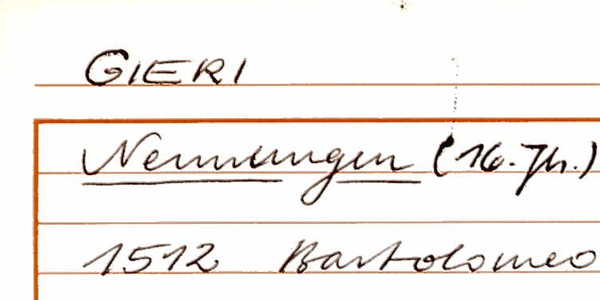 GIERI
Nennungen (16. Jh.)
1512 Bartolomeo